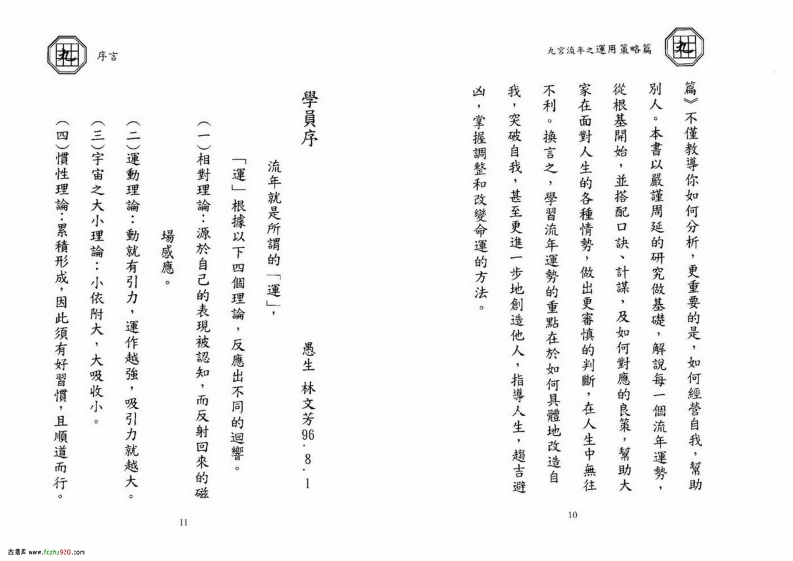 九宮流年之運用策略篇
九
篇》不僅教導你如何分析，更重要的是，如何經營自我，幫助
別人。本書以嚴謹周延的研究做基礎，解說每一個流年運勢，
從根基開始，並搭配口訣、計謀，及如何對應的良策，幫助大
家在面對人生的各種情勢，做出更審慎的判斷，在人生中無往
不利。換言之，學習流年運勢的重點在於如何具體地改造自
我，突破自我，甚至更進一步地創造他人，指導人生，趨吉避
凶，掌握調整和改變命運的方法。
10
序言
九
學員序
愚生 林文芳96.8.1
流年就是所謂的「運」，
「運」根據以下四個理論，反應出不同的迴響。
（一）相對理論：源於自己的表現被認知，而反射回來的磁
場感應。
（二）運動理論：動就有引力，運作越強，吸引力就越大。
（三）宇宙之大小理論：小依附大，大吸收小。
（四）慣性理論：累積形成，因此須有好習慣，且順道而行。
11
古籍库 www.fozhu920.com